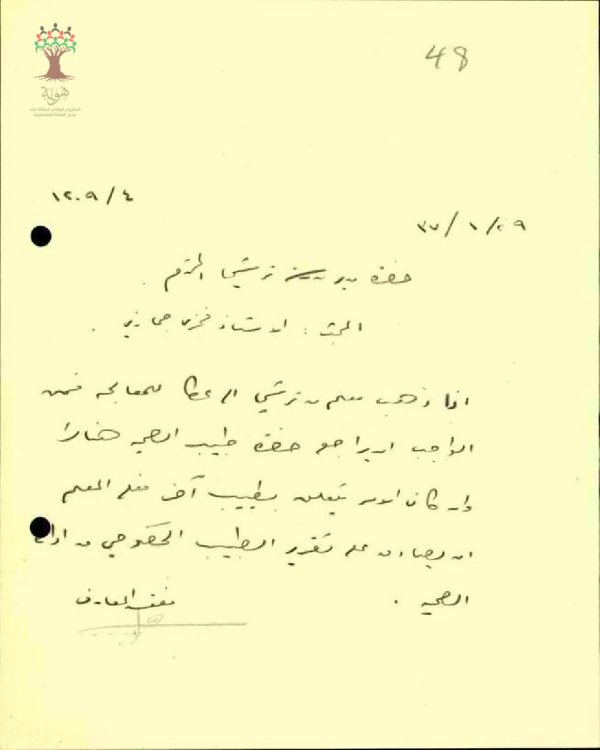 48
هوية
المشروع الوطني للحفاظ على
جذور العائلة الفلسطينية
١٢٠٩/٤
٣٧/١/٢٩
حضرة مدير مدرسة ترشيحا المحترم .
المبحث : الاستاذ فخري
اذا ذهب معلم من ترشيحا الى عكا للمعالجة فمن
الواجب ان يراجع حضرة طبيب الصحة هناك
وان كان الامر يتعلق بطبيب آخر فعلى المعلم
ان يصادق على تقرير الطبيب الحكومي من ادارة
الصحة .
مفتش المعارف